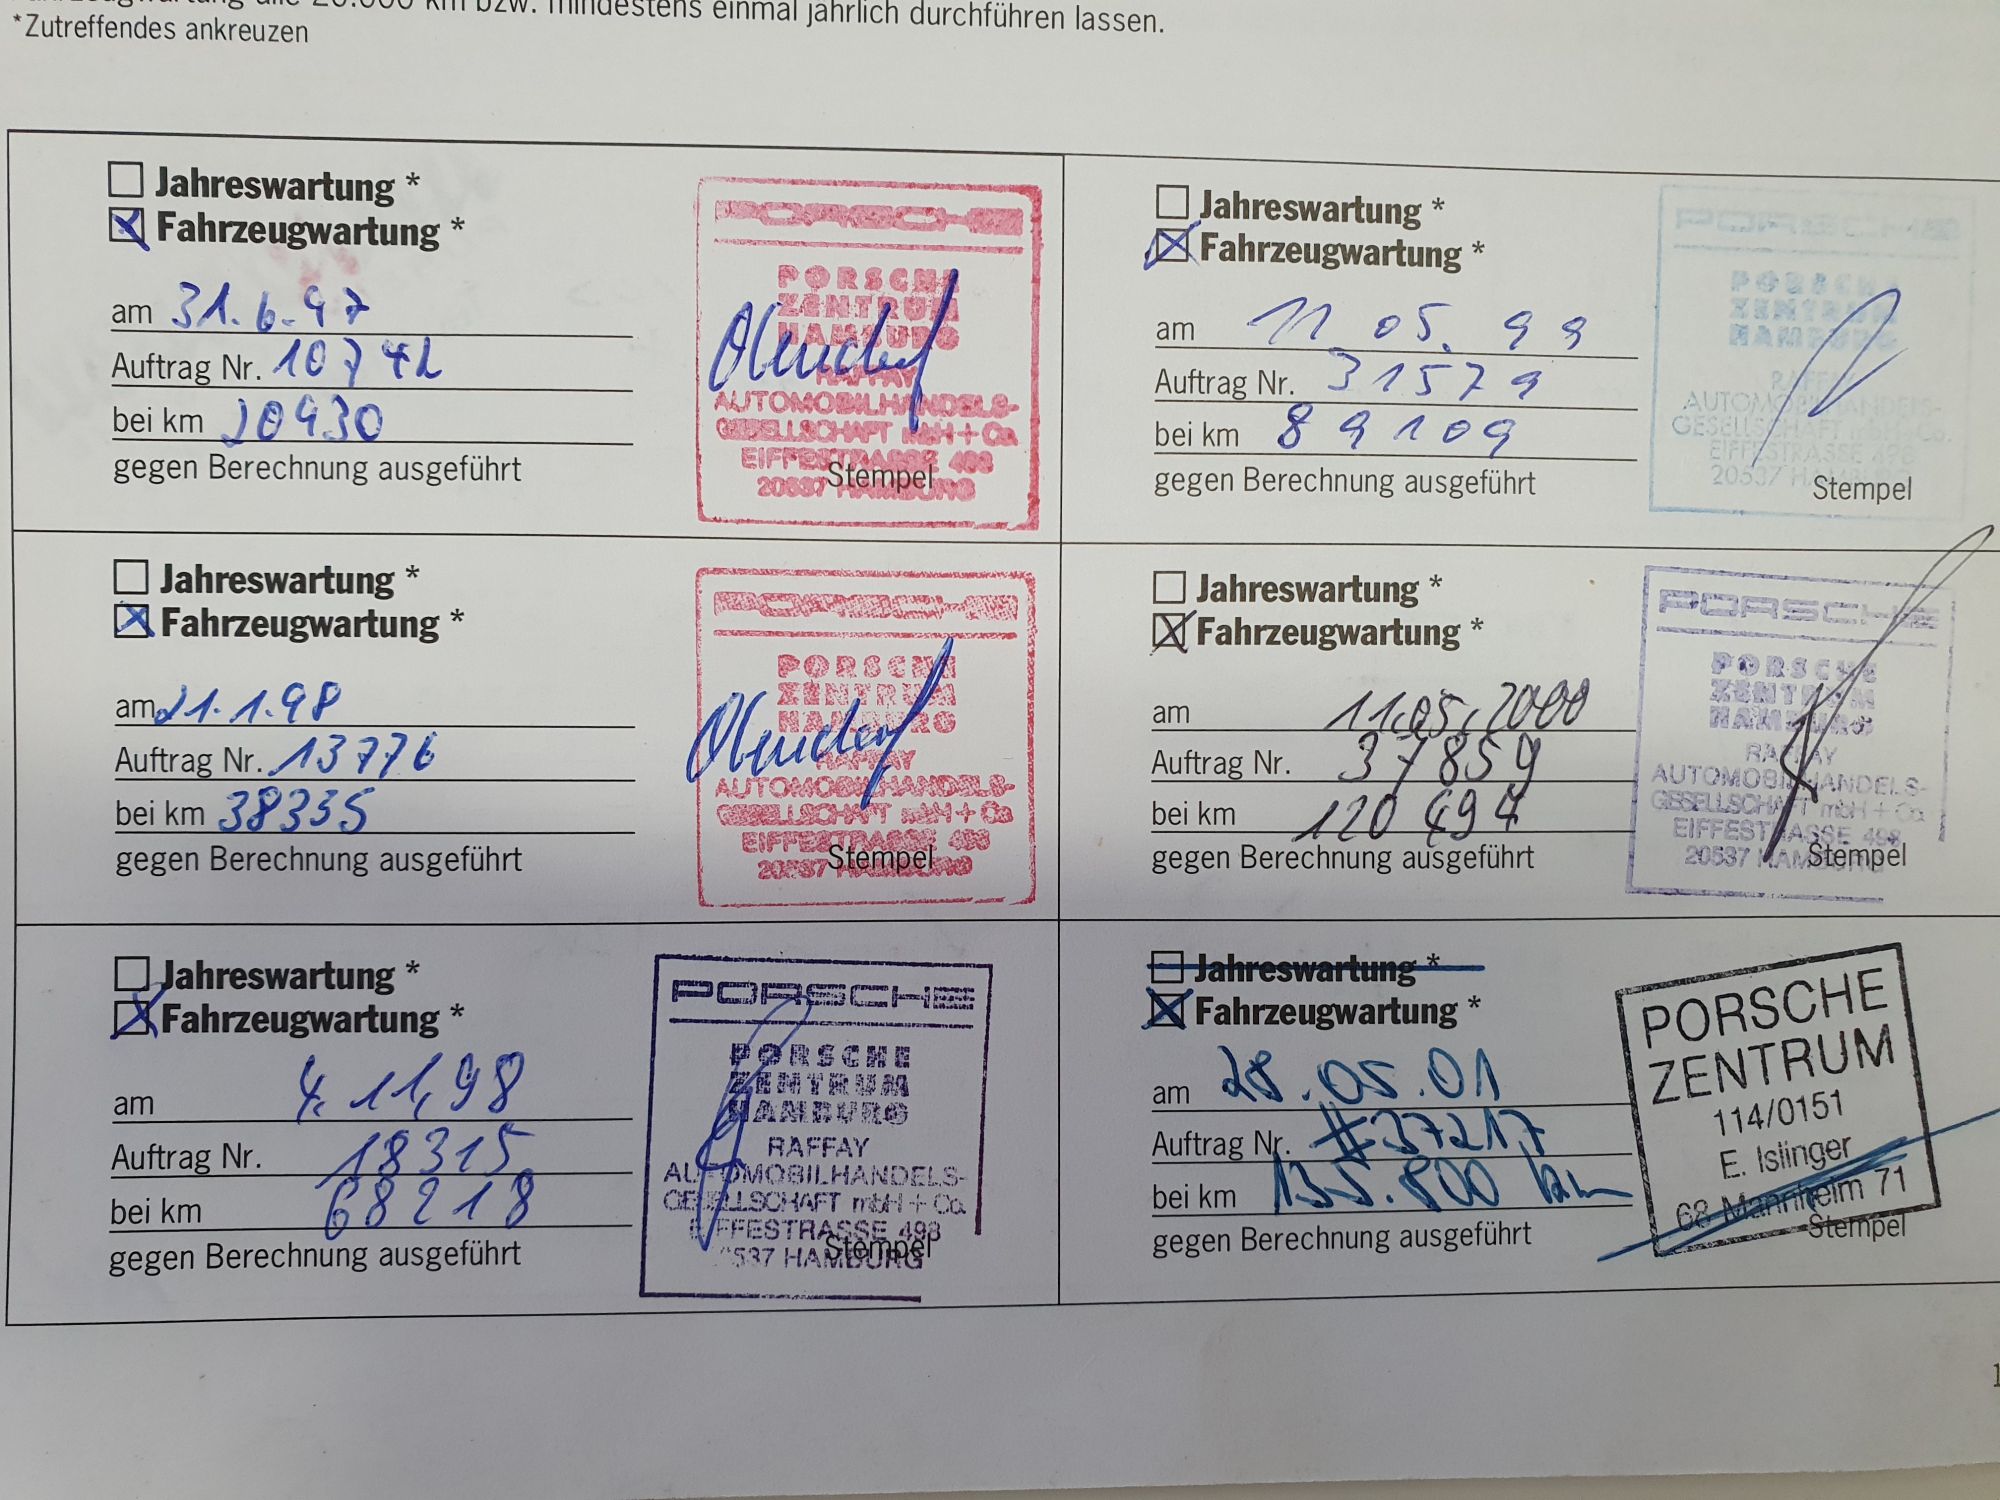 bzw. mindestens einmal jährlich durchführen lassen.
*Zutreffendes ankreuzen
Jahreswartung *
Fahrzeugwartung *
am 31.6.97
Auftrag Nr. 10742
bei km 20930
gegen Berechnung ausgeführt
PORSCHE
PORSCHE
ZENTRUM
HAMBURG
RAFFAY
AUTOMOBILHANDELS-
GESELLSCHAFT mbH + Co.
EIFFESTRASSE 498
20537 HAMBURG
Stempel
Jahreswartung *
Fahrzeugwartung *
am 21.1.98
Auftrag Nr. 13776
bei km 38335
gegen Berechnung ausgeführt
PORSCHE
PORSCHE
ZENTRUM
HAMBURG
RAFFAY
AUTOMOBILHANDELS-
GESELLSCHAFT mbH + Co.
EIFFESTRASSE 498
20537 HAMBURG
Stempel
Jahreswartung *
Fahrzeugwartung *
am 4.11,98
Auftrag Nr. 18315
bei km 68218
gegen Berechnung ausgeführt
PORSCHE
PORSCHE
ZENTRUM
HAMBURG
RAFFAY
AUTOMOBILHANDELS-
GESELLSCHAFT mbH + Co.
EIFFESTRASSE 498
20537 HAMBURG
Stempel
Jahreswartung *
Fahrzeugwartung *
am 11.05.99
Auftrag Nr. 31579
bei km 89109
gegen Berechnung ausgeführt
PORSCHE
PORSCHE
ZENTRUM
HAMBURG
RAFFAY
AUTOMOBILHANDELS-
GESELLSCHAFT mbH + Co.
EIFFESTRASSE 498
20537 HAMBURG
Stempel
Jahreswartung *
Fahrzeugwartung *
am 11.05.2000
Auftrag Nr. 37859
bei km 120 494
gegen Berechnung ausgeführt
PORSCHE
PORSCHE
ZENTRUM
HAMBURG
RAFFAY
AUTOMOBILHANDELS-
GESELLSCHAFT mbH + Co.
EIFFESTRASSE 498
20537 HAMBURG
Stempel
Jahreswartung *
Fahrzeugwartung *
am 28.05.01
Auftrag Nr. #37217
bei km 135.800 km
gegen Berechnung ausgeführt
PORSCHE
ZENTRUM
114/0151
E. Islinger
68 Mannheim 71
Stempel